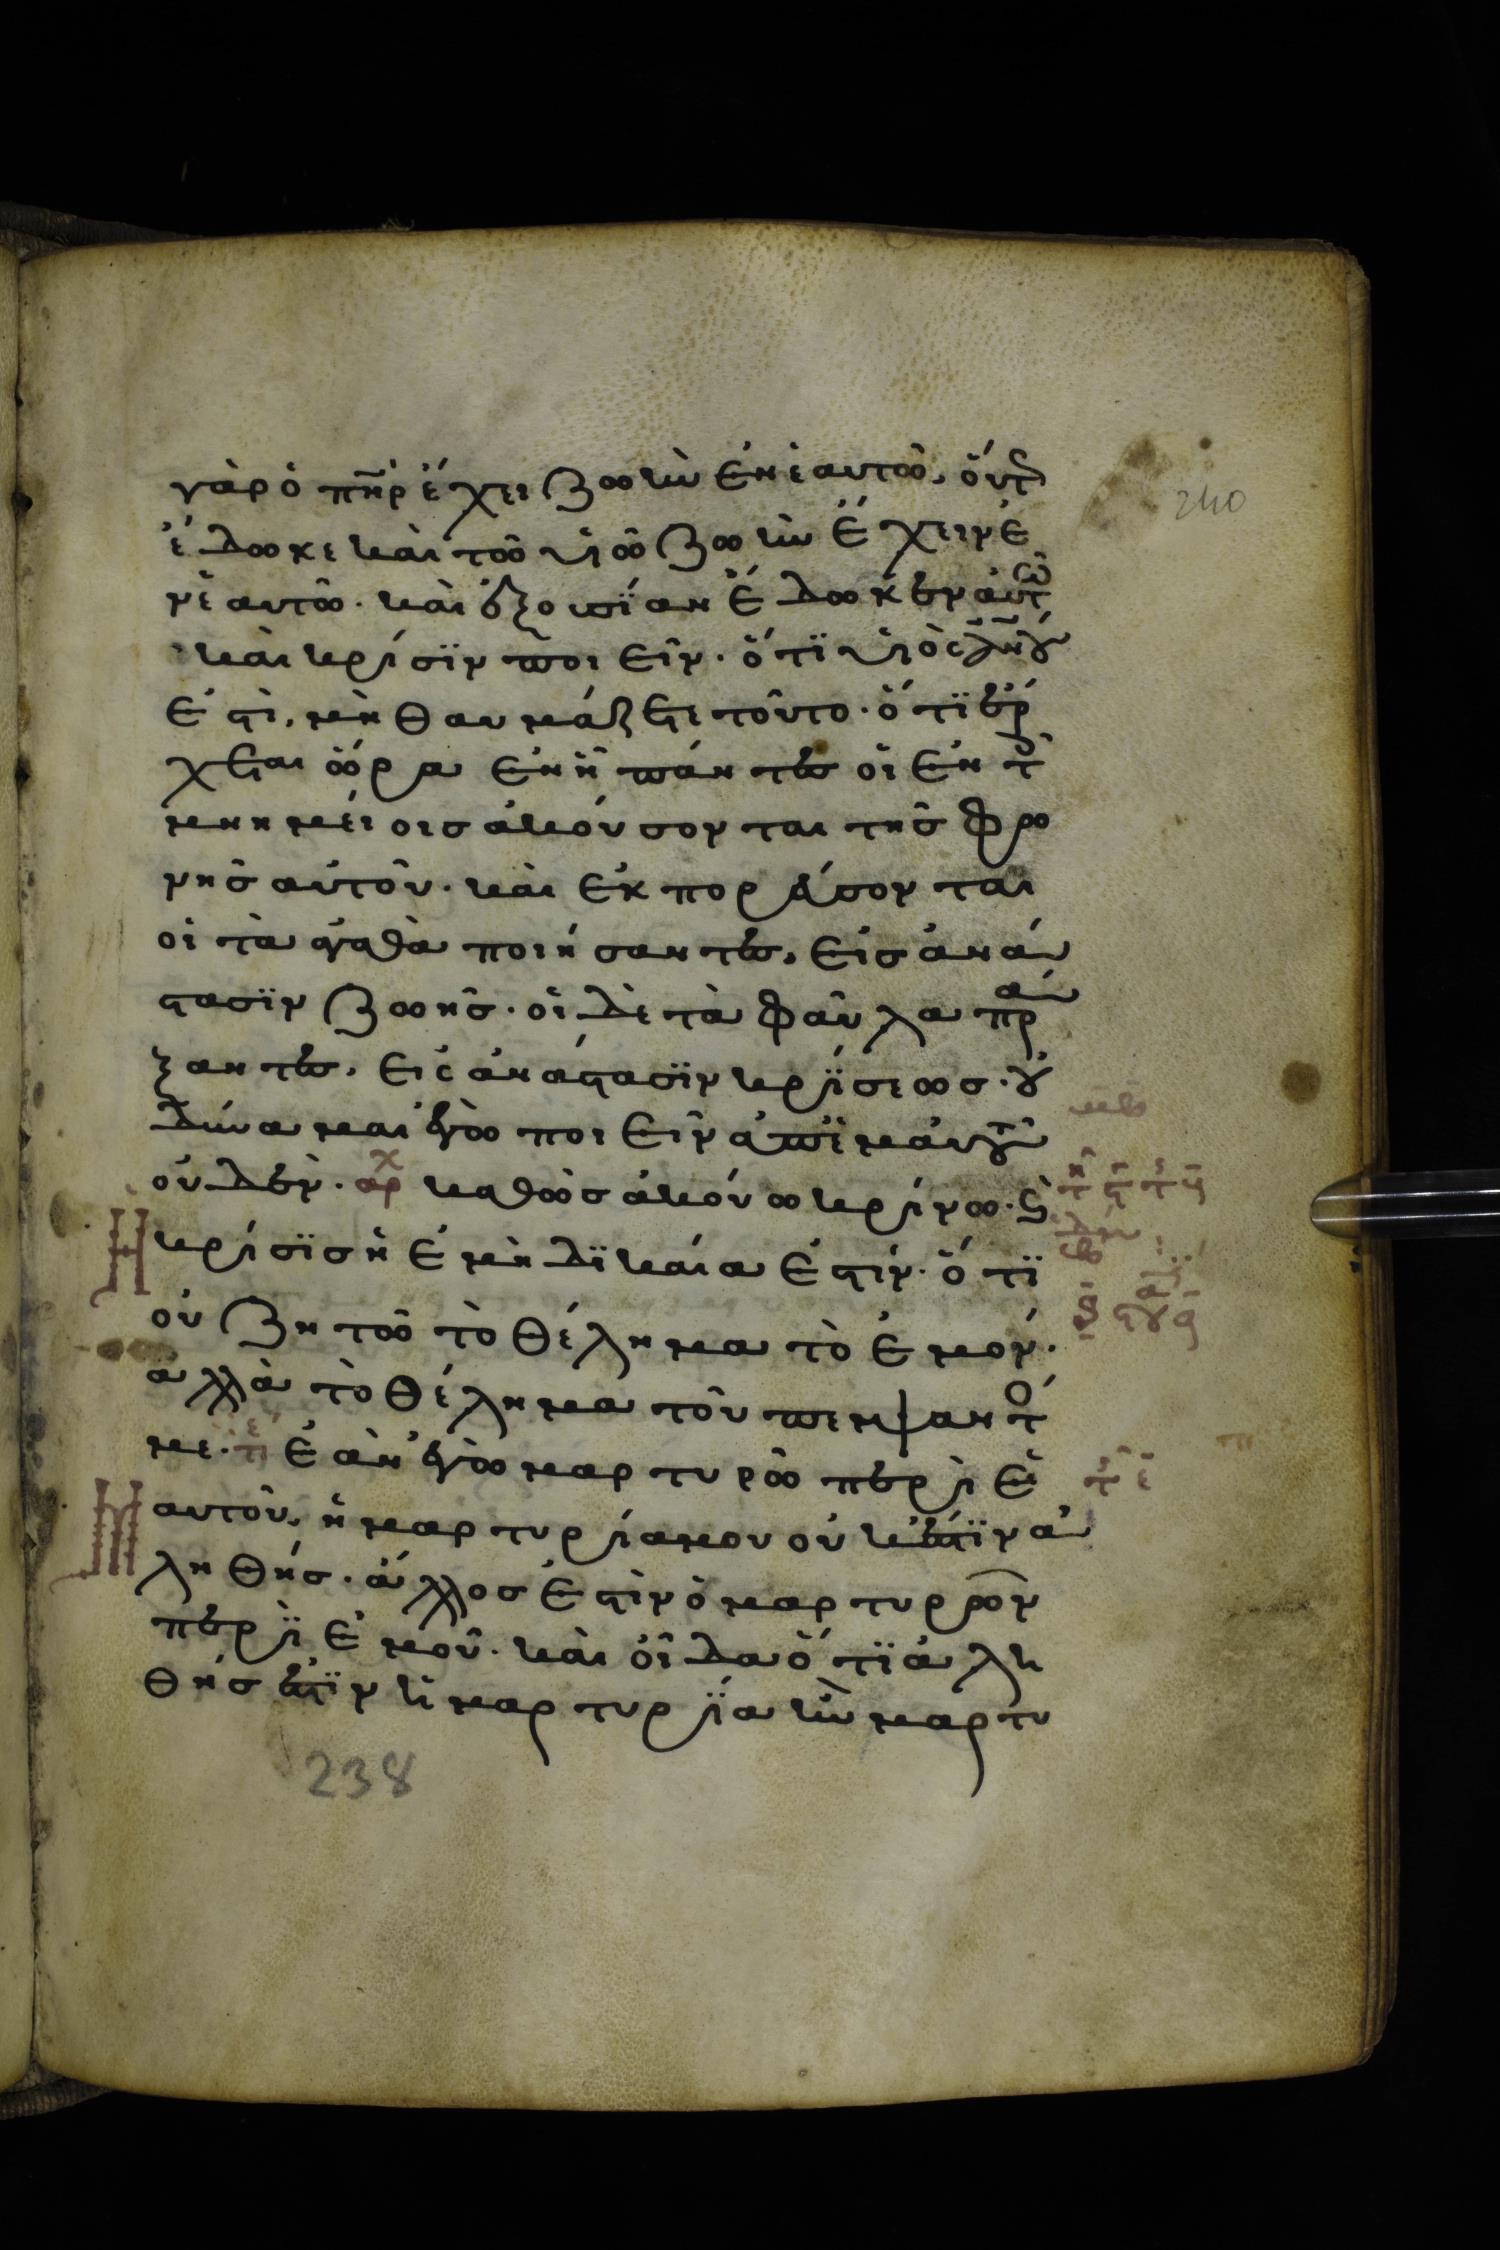 γὰρ ὁ πη̅ρ ἔχει ζωὴν ἐν ἑαυτῶ, οὕτ
ἔδωκε καὶ τῶ υἱῶ ζωὴν ἔχειν ἐ
ν ἑαυτῶ. καὶ ἐξουσϊαν ἔδωκεν αὐτῶ
καὶ κρίσϊν ποιεῖν. ὅτϊ υἱὸς ἀν̅ου
ἐστὶ, μὴ θαυμάζετε τοῦτο. ὅτϊ ἔρ
χεται ὥρα ἐν ἧ πάντες οἱ ἐν τ
μνημείοις ἀκούσονται τῆς φω
νῆς αὐτοῦ. καὶ ἐκπορεύσονται
οἱ τὰ ἀγαθὰ ποιήσαντες, εἰς ἀνά
στασϊν ζωῆς. οἱ δὲ τὰ φαῦλα πρά
ξαντες, εἰς ἀνάστασϊν κρίσεως. οὐ
δύναμαι ἐγὼ ποιεῖν ἀπ' ἐμαυτοῦ
οὐδέν. αρχ καθὼς ἀκούω κρίνω. καὶ
Η κρίσϊς ἡ ἐμὴ δϊκαία ἐστίν. ὅτϊ
οὐ ζητῶ τὸ θέλημα τὸ ἐμόν.
ἀλλὰ τὸ θέλημα τοῦ πέμψαντό
με. τε ἐὰν ἐγὼ μαρτυρῶ περὶ ἐ
μαυτοῦ, ἡ μαρτυρία μου οὐκ ἔστϊν ἀ
ληθής. ἄλλος ἐστὶν ὁ μαρτυρῶν
περὶ ἐμοῦ. καὶ οἶδα ὅτϊ ἀλη
θής ἐστϊν ἡ μαρτυρϊα ἣν μαρτυ
238
240